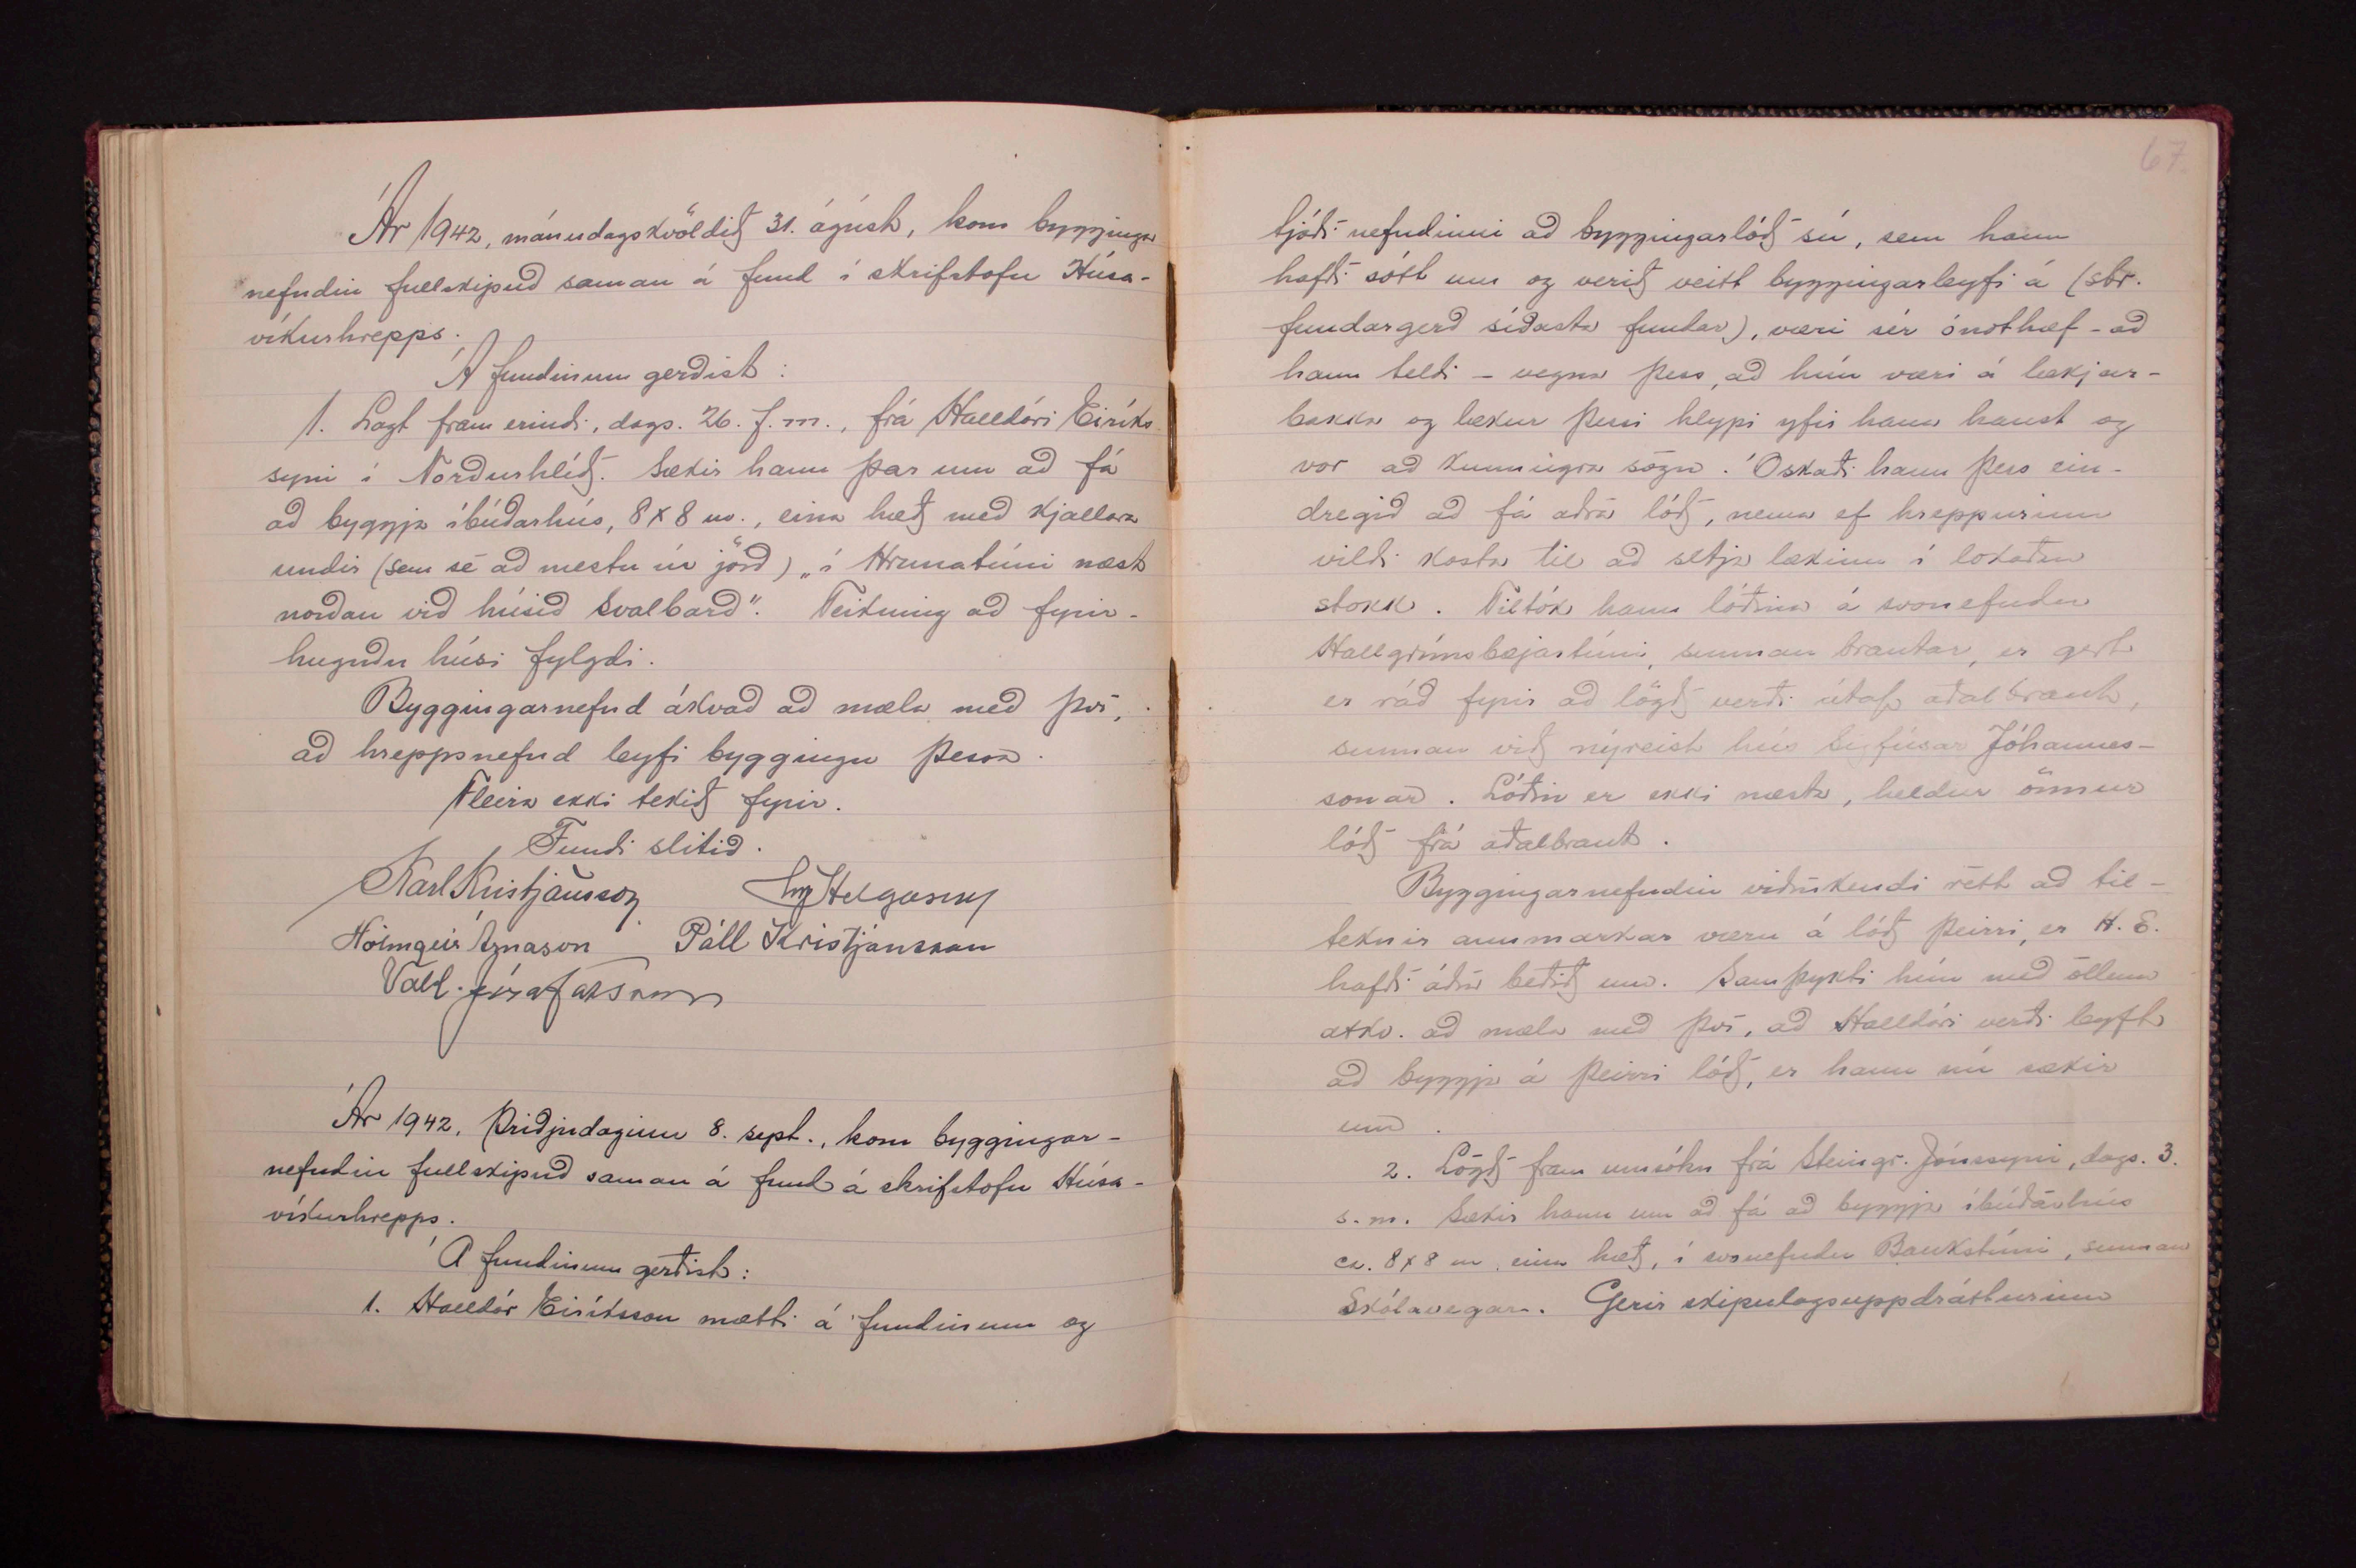 Ár 1942, mánudagskvöldið 31. ágúst, kom bygginga
nefndin fullskipuð saman á fund í skrifstofu Húsa-
víkurhrepps.
Á fundinum gerðist:
1. Lagt fram erindi, dags. 26. f.m., frá Halldóri Eiríks
syni í Norðurhlíð. Sækir hann þar um að fá
að byggja íbúðarhús, 8x8 m., eina hæð með kjallara
undir (sem sé að mestu úr jörð) „í Hrunatúni næst
norðan við húsið Svalbarð". Teikning að fyrir-
huguðu húsi fylgdi.
Byggingarnefnd ákvað að mæla með því,
að hreppsnefnd leyfi byggingu þessa.
Fleira ekki tekið fyrir.
Fundi slitið.
Karl Kristjánsson Helgason
Hólmgeir Árnason Páll Kristjánsson
Vald. Jósafatsson
Ár 1942, þriðjudaginn 8. sept., kom byggingar-
nefndin fullskipuð saman á fund á skrifstofu Húsa-
víkurhrepps.
Á fundinum gerðist:
1. Halldór Eiríksson mætti á fundinum og
67.
tjáði nefndinni að byggingarlóð sú, sem hann
hafði sótt um og verið veitt byggingarleyfi á (sbr.
fundargerð síðasta fundar), væri sér ónothæf - að
hann teldi - vegna þess, að hún væri á lækjar-
bakka og lækur þessi hlypi yfir hana haust og
vor að kunnugra sögn. Óskaði hann þess ein-
dregið að fá aðra lóð, nema ef hreppurinn
vildi kosta til að setja lækinn í lokaðan
stokk. Tiltók hann lóðina á svonefndu
Hallgrímsbæjartúni, sunnan brautar, er gert
er ráð fyrir að lögð verði útaf aðalbraut,
sunnan við nýreist hús Sigfúsar Jóhannes-
sonar. Lóðin er ekki næsta, heldur önnur
lóð frá aðalbraut.
Byggingarnefndin viðurkendi rétt að til-
teknir annmarkar væru á lóð þeirri, er H. E.
hafði áður beðið um. Samþykti hún með öllum
atkv. að mæla með því, að Halldóri verði leyft
að byggja á þeirri lóð, er hann nú sækir
um.
2. Lögð fram umsókn frá Steingr. Jónssyni, dags. 3.
s.m. Sækir hann um að fá að byggja íbúðarhús
ca. 8x8 m, eina hæð, í svonefndu Baukstúni, sunnan
Skólavegar. Gerir skipulagsuppdrátturinn